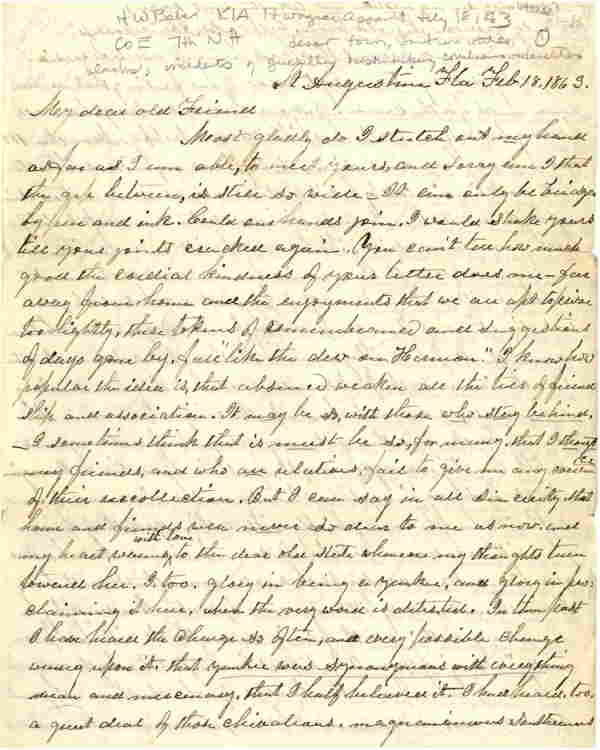 KIA Ft Wagner Assault July 18, 63
Co E 7th N H desert town,
blacks, incidents of guerrilla bushwhacking,
St Augustine Fla Feb 18. 1863.
My dear old Friend
Most gladly do I stretch out my hand
as far as I am able, to meet yours, and sorry am I that
the gap between, is still so wide – It can only be bridged
by pen and ink. Could our hands join. I would shake yours
till your joints cracked again. You can't tell how much
good the cordial kindness of your letter does me – far
away from home and the enjoyments that we are apt to prize
too lightly, these tokens of remembrance and suggestions
of days gone by, fall "like the dew on Hermon." I know how
popular the idea is, that absence weakens all the ties of friend
ship and association. It may be so, with those who stay behind,
– I sometimes think that is must be so, for many, that I thought
my friends, and who are relations, fail to give me any
of their recollection. But I can say in all sincerity, that
home and friends were never so dear to me as now. and
my heart warms with love to the dear old state whenever my thoughts turn
toward her. I. too. glory in being a yankee, and glory in pro-
claiming it here, where the very word is detested. In times past
I have heard the charge so often, and every possible change
wrung upon it, that yankee was synonymous with everything
mean and mercenary, that I half believed it. I had heard, too,
a great deal of those chivalrous. magnanimous Southrons